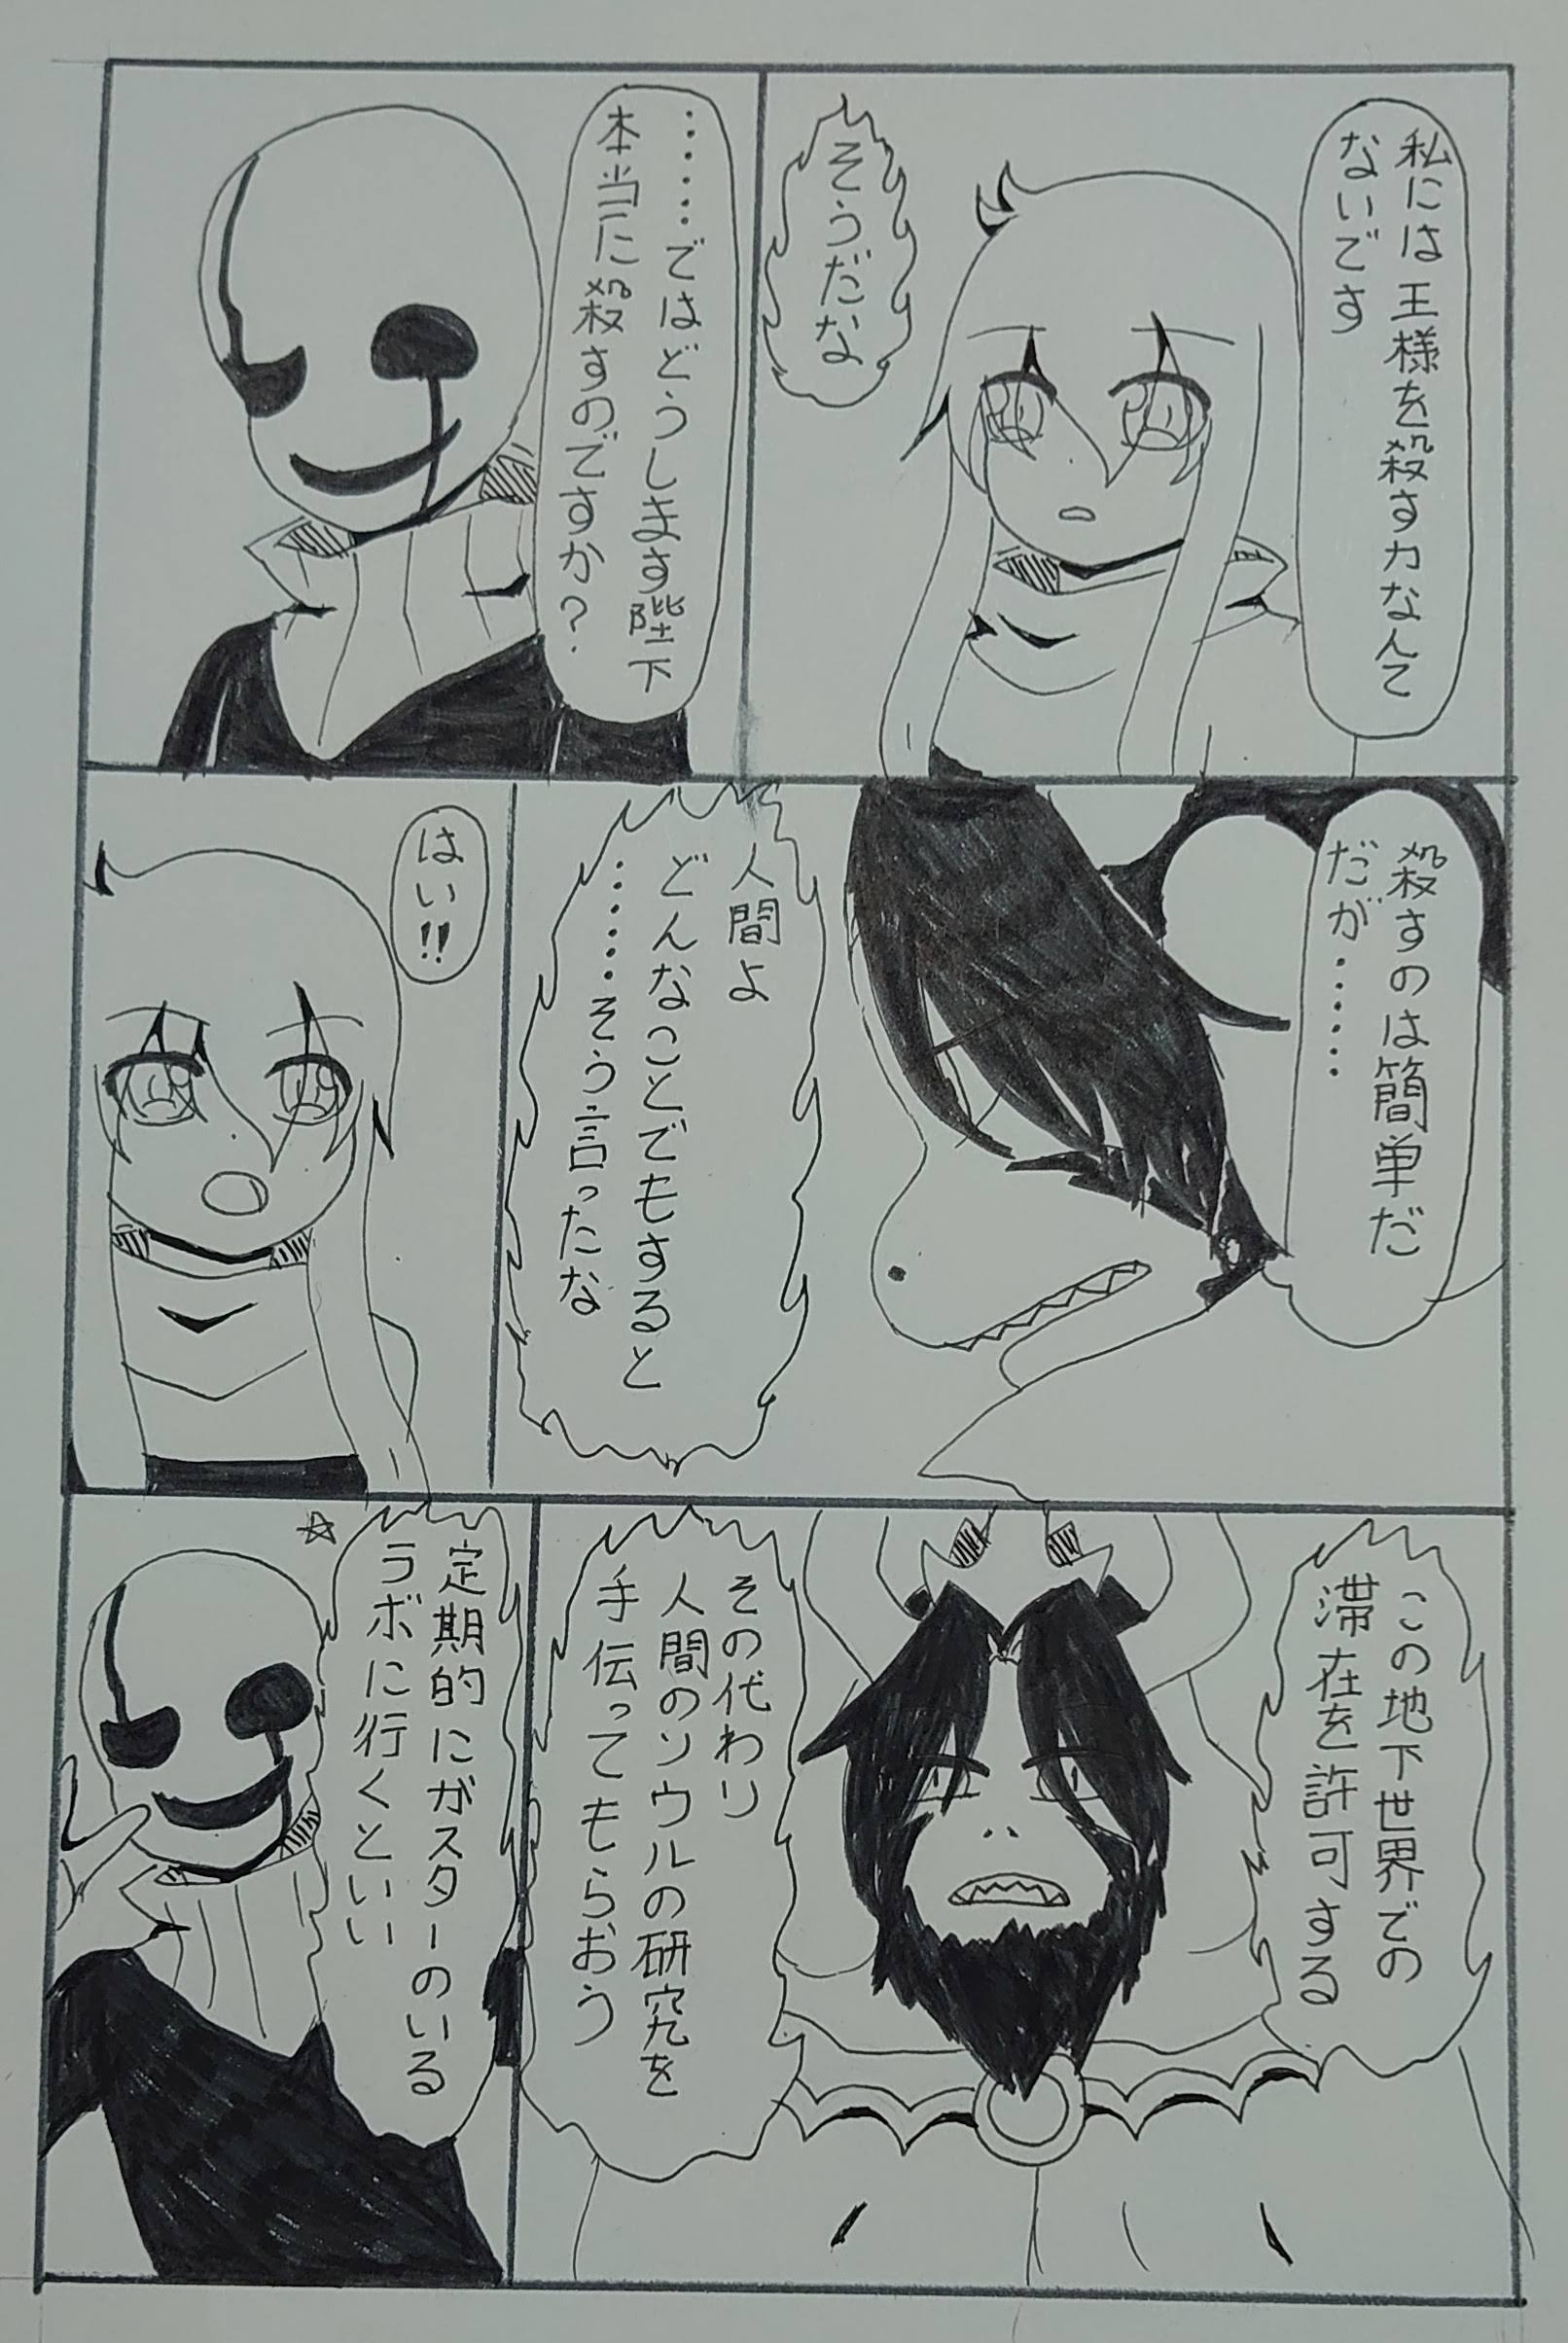 私には王様を殺す力なんて
ないです
そうだな
……ではどうします陛下
本当に殺すのですか？
殺すのは簡単だ
だが……
人間よ
どんなことでもすると
……そう言ったな
はい!!
この地下世界での
滞在を許可する
その代わり
人間のソウルの研究を
手伝ってもらおう
定期的にガスターのいる
ラボに行くといい